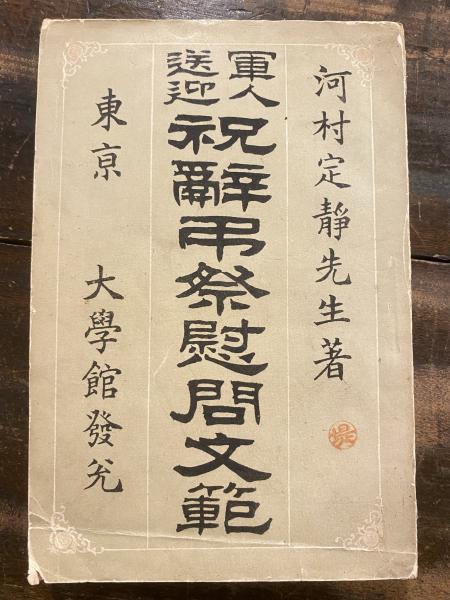 河村定靜先生著
軍人
送迎
祝辭吊祭慰問文範
東亰　大學館發兌